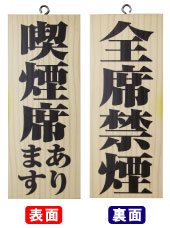 喫煙席あります
全席禁煙
表面
裏面